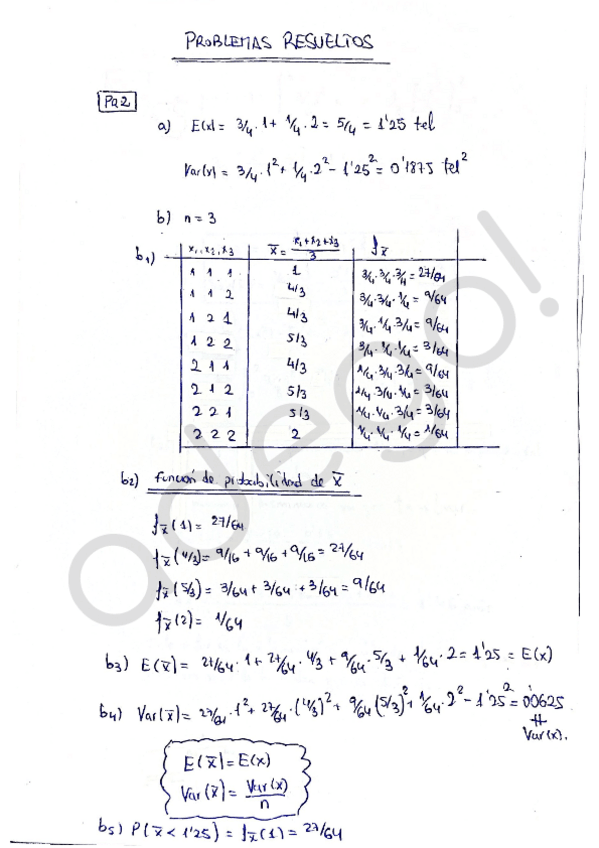 PROBLEMAS RESUELTOS
Pa2
a) E(x) = 3/4 · 1 + 1/4 · 2 = 5/4 = 1'25 tel
Var(x) = 3/4 · 1² + 1/4 · 2² - 1'25² = 0'1875 tel²
b) n = 3
b1) x₁, x₂, x₃ x̄ = x₁+x₂+x₃/3 f x̄
1 1 1 1 3/4 · 3/4 · 3/4 = 27/64
1 1 2 4/3 3/4 · 3/4 · 1/4 = 9/64
1 2 1 4/3 3/4 · 1/4 · 3/4 = 9/64
1 2 2 5/3 3/4 · 1/4 · 1/4 = 3/64
2 1 1 4/3 1/4 · 3/4 · 3/4 = 9/64
2 1 2 5/3 1/4 · 3/4 · 1/4 = 3/64
2 2 1 5/3 1/4 · 1/4 · 3/4 = 3/64
2 2 2 2 1/4 · 1/4 · 1/4 = 1/64
b2) función de probabilidad de x̄
f x̄ (1) = 27/64
f x̄ (4/3) = 9/16 + 9/16 + 9/16 = 27/64
f x̄ (5/3) = 3/64 + 3/64 + 3/64 = 9/64
f x̄ (2) = 1/64
b3) E(x̄) = 27/64 · 1 + 27/64 · 4/3 + 9/64 · 5/3 + 1/64 · 2 = 1'25 = E(x)
b4) Var(x̄) = 27/64 · 1² + 27/64 · (4/3)² + 9/64 (5/3)² + 1/64 · 2² - 1'25² = 0'0625
≠
Var(x).
E(x̄) = E(x)
Var(x̄) = Var(x)/n
b5) P(x̄ < 1'25) = f x̄ (1) = 27/64
odego!